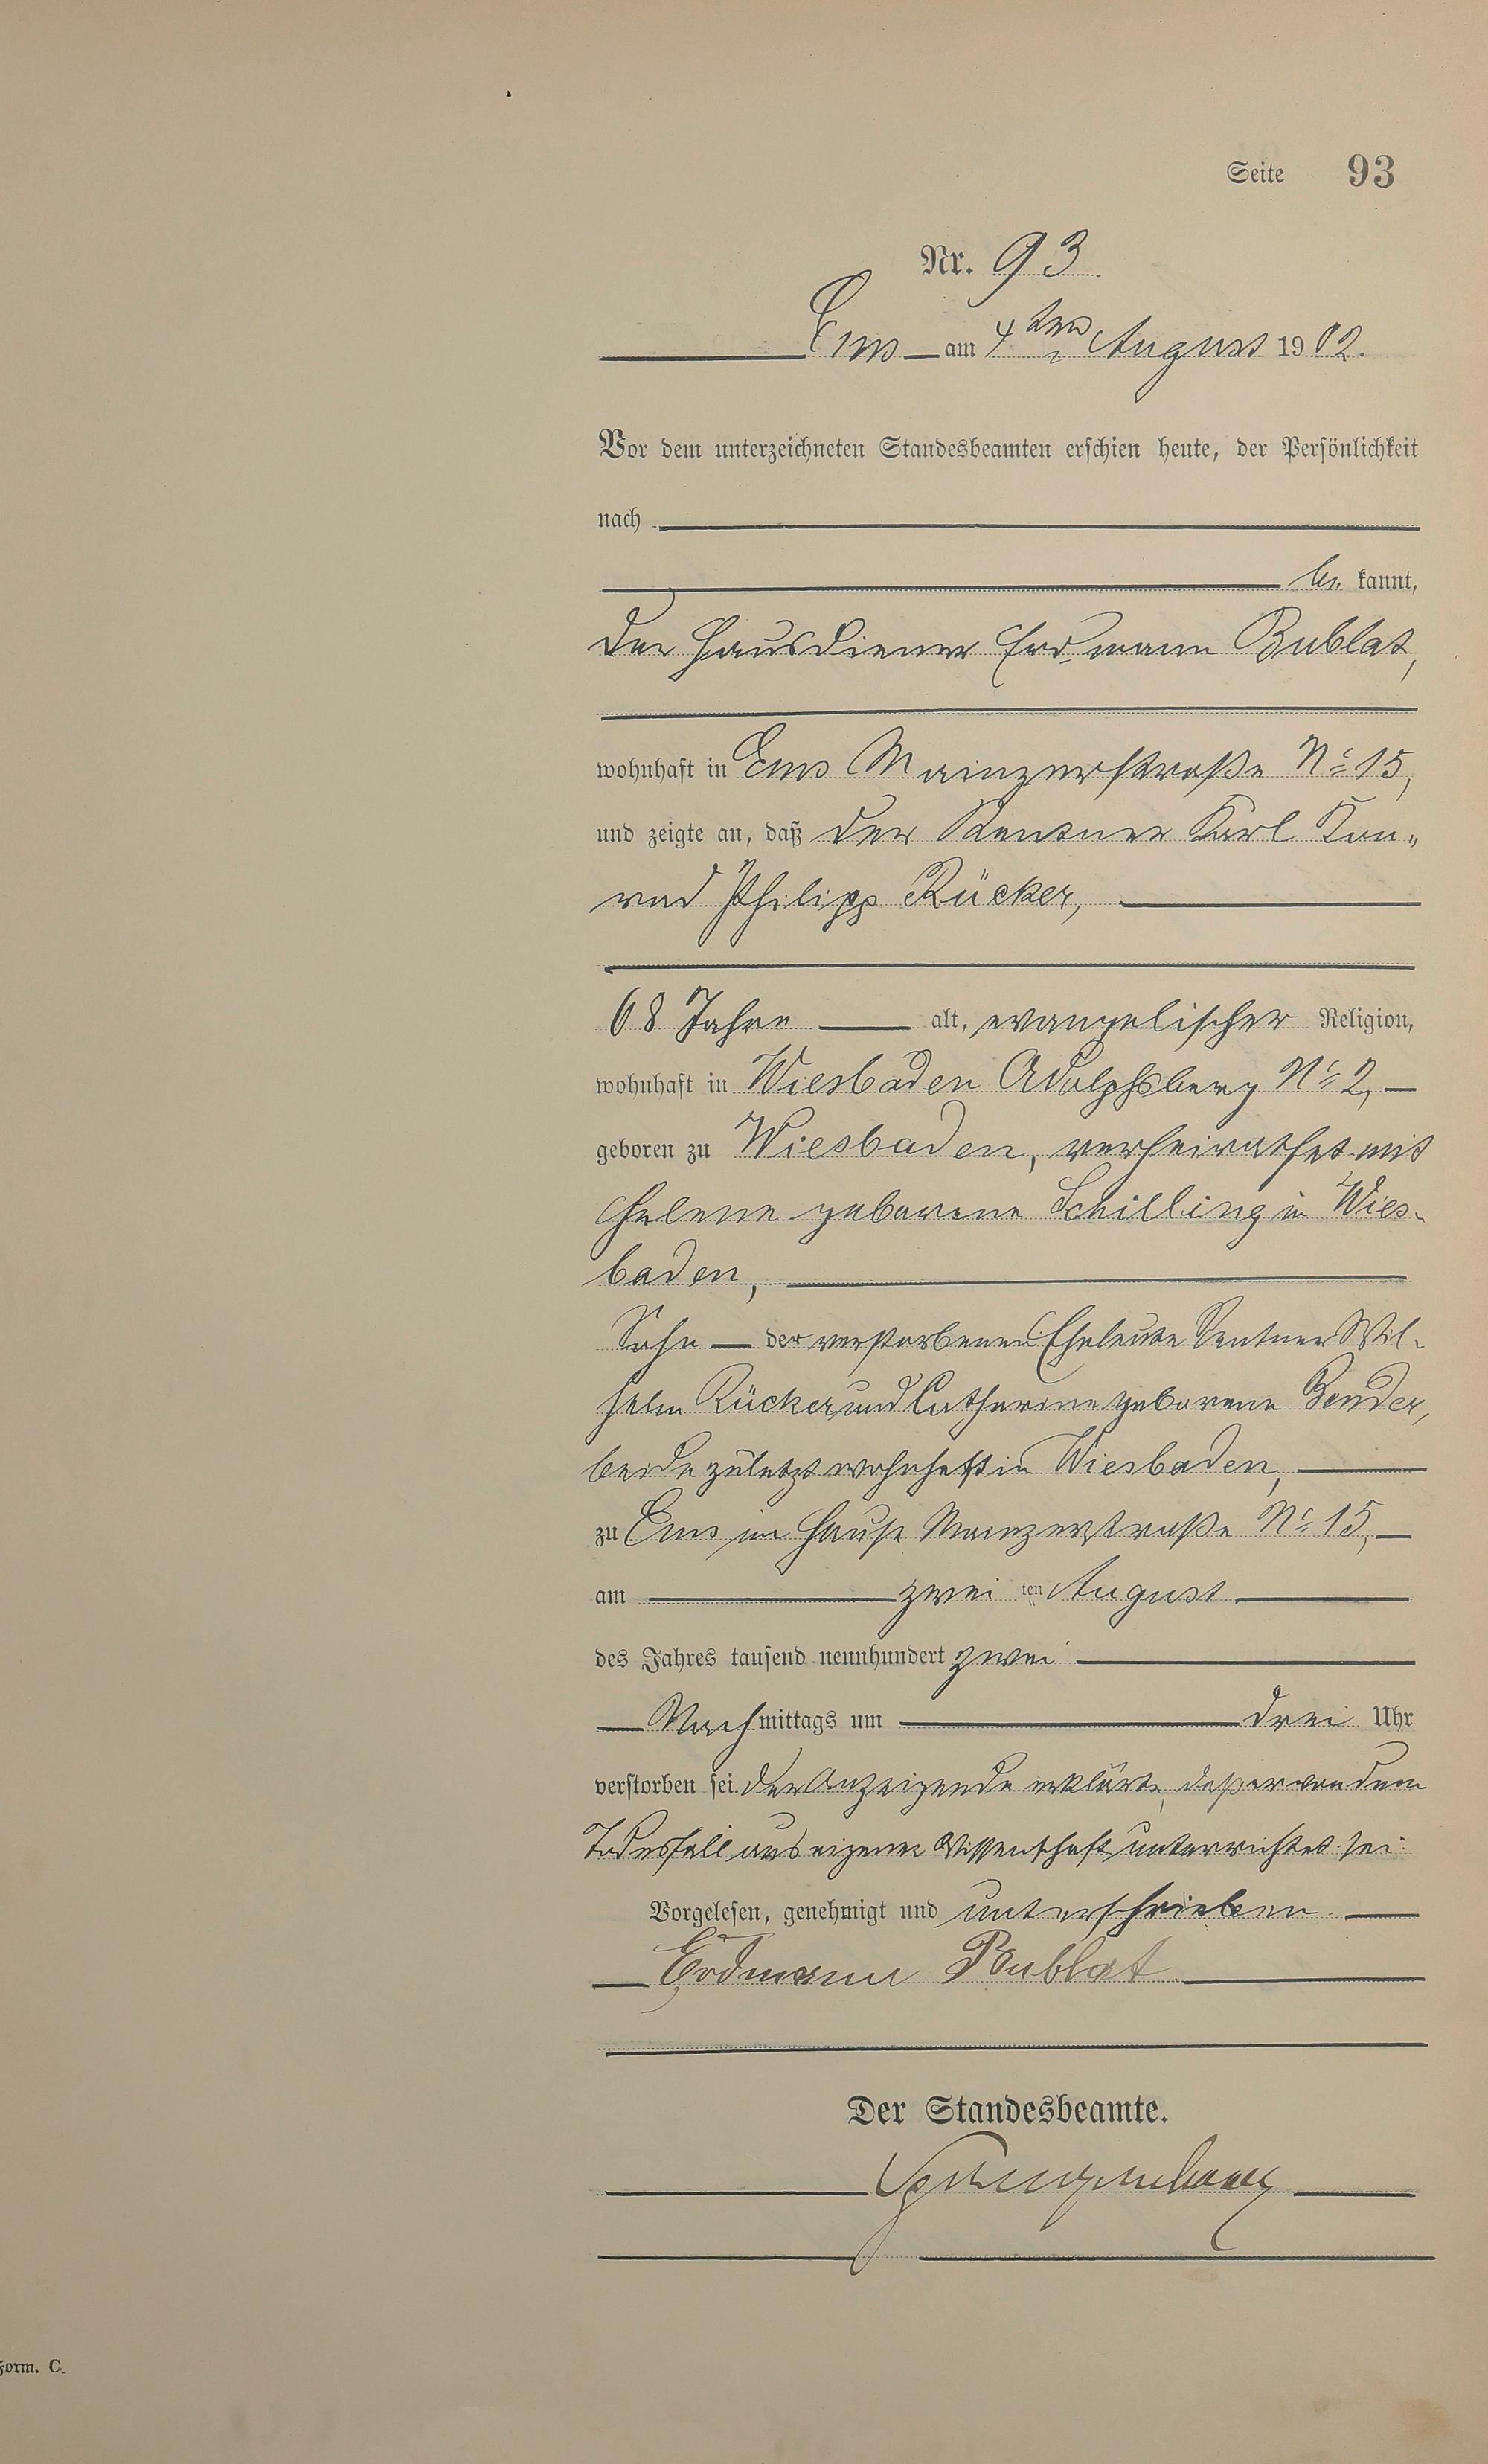 Seite 93
Nr. 93.
Ems am 4ten August 1902.
Vor dem unterzeichneten Standesbeamten erschien heute, der Persönlichkeit
nach
be kannt,
der Hausdiener Erdmann Bublat,
wohnhaft in Ems Mainzerstraße No 15,
und zeigte an, daß der Rentner Karl Kon„
rad Philipp Rücker,
68 Jahre alt, evangelischer Religion,
wohnhaft in Wiesbaden Adolphsberg No 2,
geboren zu Wiesbaden, verheirathet mit
Helene geborene Schilling in Wies-
baden,
Sohn der verstorbenen Eheleute Rentner Wil-
helm Rücker und Catharine geborene Bender,
beide zuletzt wohnhaft in Wiesbaden,
zu Ems im Hause Mainzerstraße No 15,
am zwei ten August
des Jahres tausend neunhundert zwei
Nachmittags um drei Uhr
verstorben sei. Der Anzeigende erklärte, daß er von dem
Todesfall aus eigener Wissenschaft unterrichtet sei.
Vorgelesen, genehmigt und unterschrieben.
Erdmann Bublat
Der Standesbeamte.
Form. C.